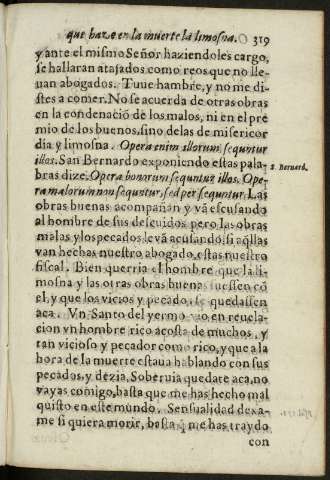 que haze en la muerte la limosna. 319
y ante el mismo Señor haziendoles cargo,
se hallaran atajados como reos que no lle-
uan abogados. Tuue hambre, y no me di-
stes a comer. No se acuerda de otras obras
en la condenació de los malos, ni en el pre
mio de los buenos, sino delas de misericor
dia y limosna. Opera enim illorum sequntur
illos. San Bernardo exponiendo estas pala-
S. Bernard.
bras dize. Opera bonorum sequntur illos, Ope-
ra malorum non sequntur, sed persequntur. Las
obras buenas acompañan y vá escusando
al hombre de sus descuidos pero las obras
malas y los pecados le vá acusando, si aq̃llas
van hechas nuestro abogado, estas nuestro
fiscal. Bien querria el hombre que la li-
mosna y las otras obras buenas fuessen có
el, y que los vicios y pecados se quedassen
aca. Vn Santo del yermo vio en reuela-
cion vn hombre rico acosta de muchos, y
tan vicioso y pecador como rico, y que a la
hora de la muerte estaua hablando con sus
pecados, y dezia, Soberuia quedate aca, no
vayas comigo, basta que me has hecho mal
quisto en este mundo. Sensualidad dexa-
me si quiera morir, basta q̃ me has traydo
con